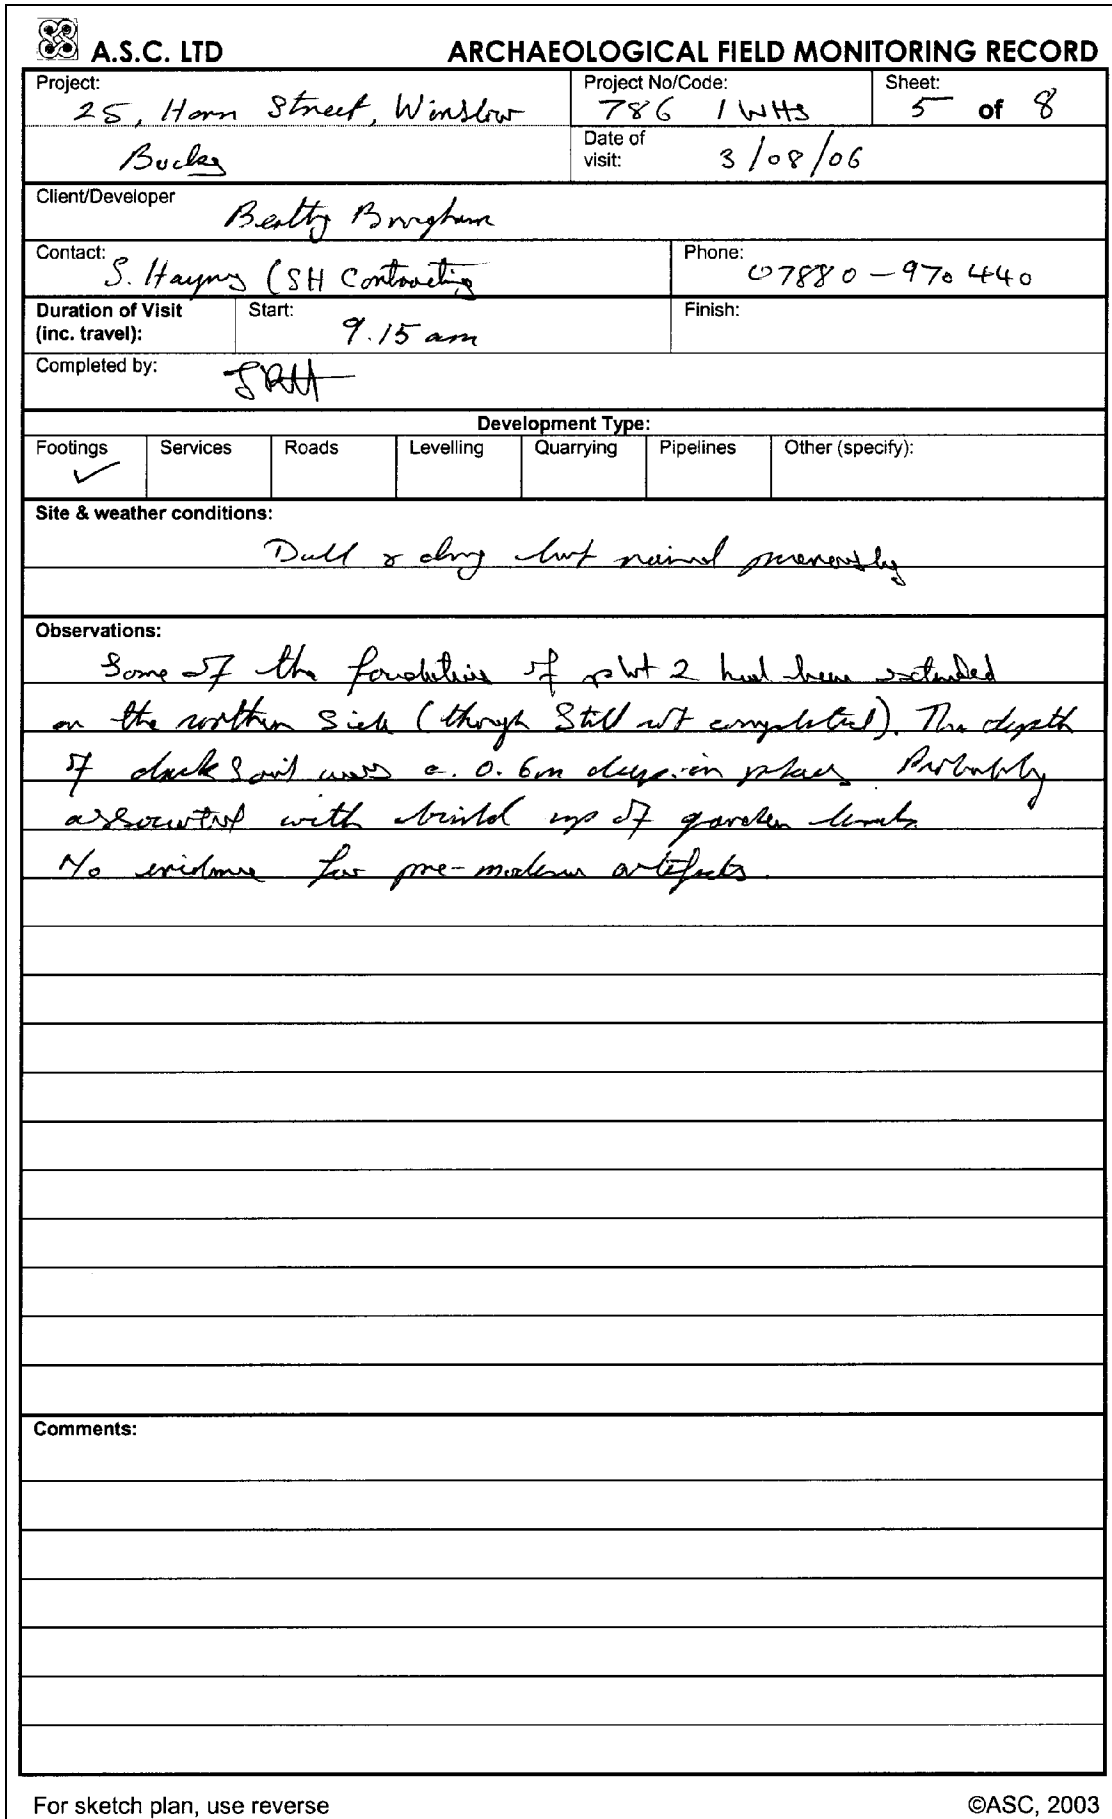 A.S.C. LTD ARCHAEOLOGICAL FIELD MONITORING RECORD
Project: Project No/Code: Sheet:
25, Horn Street, Winslow 786 / WHS 5 of 8
Bucks Date of visit: 3/08/06
Client/Developer
Beatty
Contact: Phone:
S. Haynes (SH Contracting 07880-970440
Duration of Visit (inc. travel): Start: 9.15 am Finish:
Completed by: JRH
Development Type:
Footings ✓ Services Roads Levelling Quarrying Pipelines Other (specify):
Site & weather conditions:
Dull & dry but rained previously
Observations:
Some of the foundations of plot 2 had been extended
on the northern side (though still not completed). The depth
of dark soil was c. 0.6m deep in places Probably
associated with build up of garden levels
No evidence for pre-modern artefacts.
Comments:
For sketch plan, use reverse ©ASC, 2003